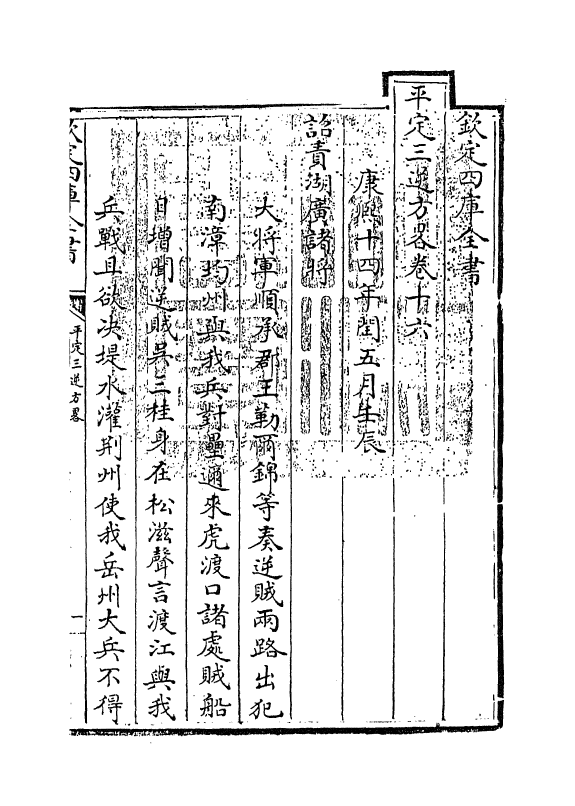 欽定四庫全書
平定三逆方畧卷十六
康熙十四年閏五月壬辰
詔責湖廣諸將
大將軍順承郡王勒爾錦等奏逆賊兩路出犯
南漳均州與我兵對壘邇來虎渡口諸處賊船
日增聞逆賊吳三桂身在松滋聲言渡江與我
兵戰且欲決堤水灌荆州使我岳州大兵不得
欽定四庫全書
平定三逆方畧
一